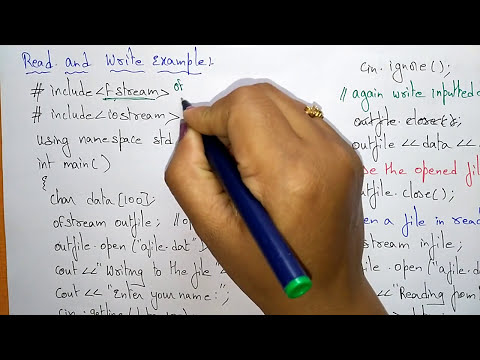 Read and Write Example:
# include <fstream> of
# include <iostream>
using namespace std
int main()
{
char data[100];
ofstream outfile; // o
outfile.open("afile.dat")
cout << "Writing to the file"
cout << "Enter your name:";
cin.getline(data
cin.ignore();
// again write inputted d
outfile.close();
outfile << data <<
se the opened fil
file.close();
en a file in rea
stream infile;
e.open("afile.d
<< "Reading from